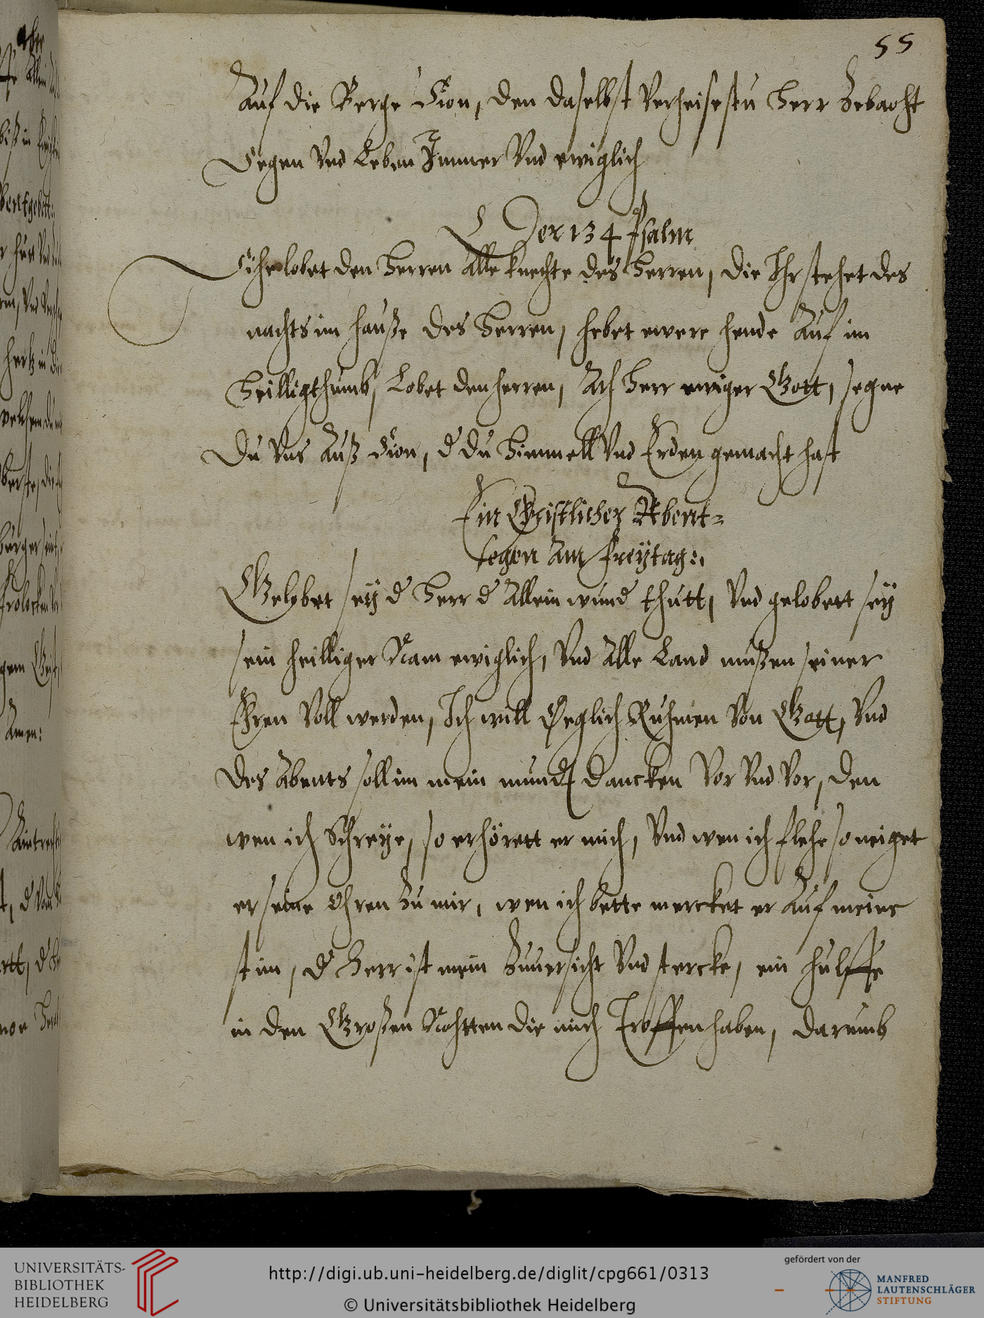 55
Auf die Berge Sion, den daselbst Verheisestu Herr Zebaoht
Segen Vnd Leben Immer Vnd ewiglich
Der 134 Psalm
Sihe lobet den Herren Alle knechte des Herren, die Ihr stehet des
nachts im hauße des Herren, hebet ewere hende Auf im
Heilligthumb, Lobet den herren, Ach Herr ewiger Gott, segne
Du Vns Auß Sion, d du Himmell Vnd Erden gemacht hast
Ein Geistlicher Abent-
segen Am freytag:,
Gelobet sey d Herr d Allein wund thutt, Vnd gelobett sey
sein heilliger Nam ewiglich, Vnd Alle Land mußen seiner
Ehren Voll werden, Ich will Teglich Ruhmen Von Gott, Vnd
des Abents soll im mein mund dancken Vor Vnd Vor, den
wen ich Schreye, so erhörett er mich, Vnd wen ich flehe so neiget
er seine Ohren Zu mir, wen ich bette mercket er Auf meine
stim, d Herr ist mein Zuuersicht Vnd stercke, ein hulffe
in den Großen Nohtten die mich Troffen haben, darumb
UNIVERSITÄTS-
BIBLIOTHEK
HEIDELBERG
http://digi.ub.uni-heidelberg.de/diglit/cpg661/0313
© Universitätsbibliothek Heidelberg
gefördert von der
MANFRED
LAUTENSCHLÄGER
STIFTUNG